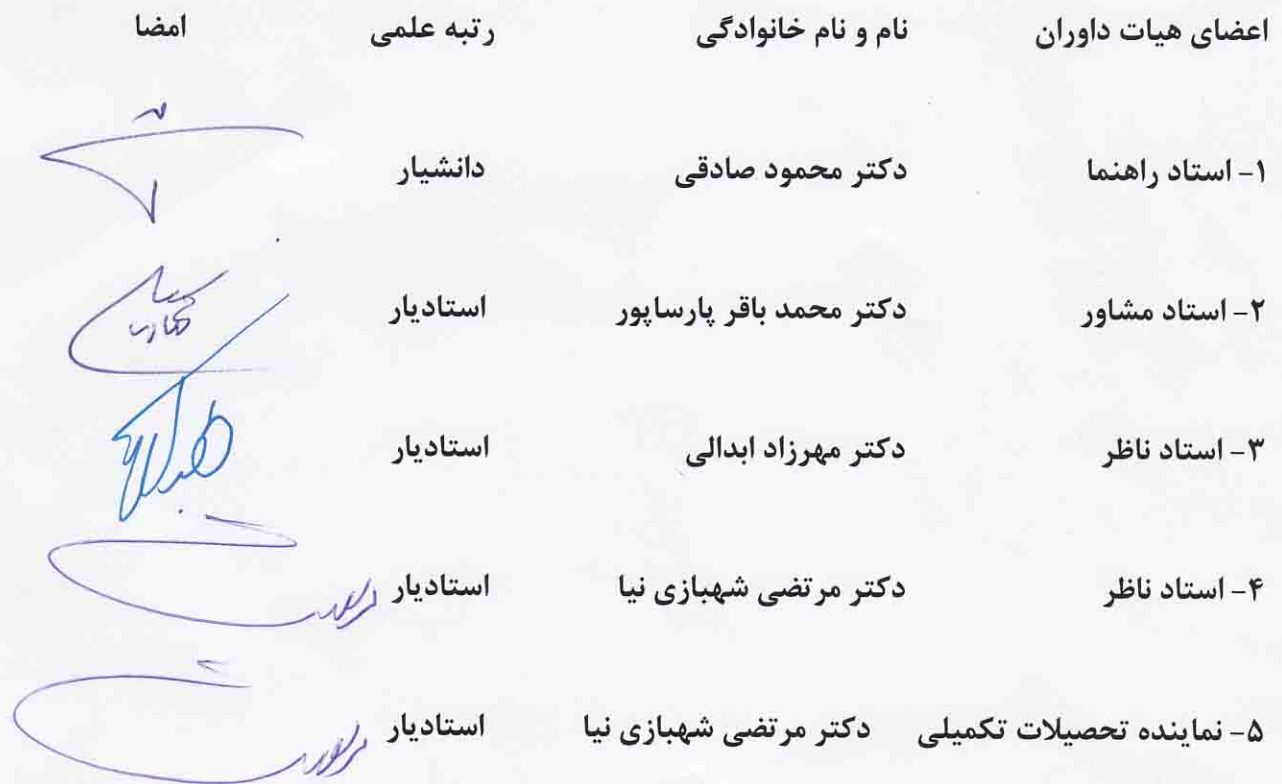 اعضای هیات داوران نام و نام خانوادگی رتبه علمی امضا
۱- استاد راهنما دکتر محمود صادقی دانشیار
۲- استاد مشاور دکتر محمد باقر پارساپور استادیار
۳- استاد ناظر دکتر مهرزاد ابدالی استادیار
۴- استاد ناظر دکتر مرتضی شهبازی نیا استادیار
۵- نماینده تحصیلات تکمیلی دکتر مرتضی شهبازی نیا استادیار